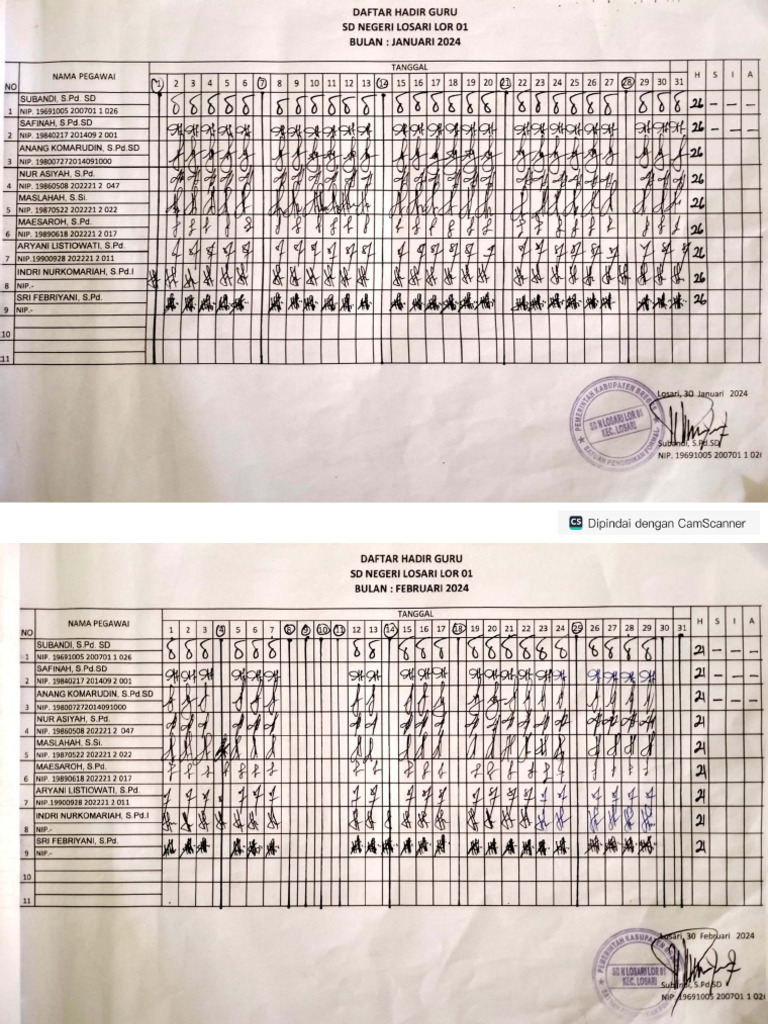 DAFTAR HADIR GURU
SD NEGERI LOSARI LOR 01
BULAN : JANUARI 2024
NO NAMA PEGAWAI TANGGAL H S I A
1 2 3 4 5 6 7 8 9 10 11 12 13 14 15 16 17 18 19 20 21 22 23 24 25 26 27 28 29 30 31
1 SUBANDI, S.Pd. SD 26 – – –
NIP. 19691005 200701 1 026
2 SAFINAH, S.Pd.SD 26 – – –
NIP. 19840217 201409 2 001
3 ANANG KOMARUDIN, S.Pd.SD 26
NIP. 198007272014091000
4 NUR ASIYAH, S.Pd. 26
NIP. 19860508 202221 2 047
5 MASLAHAH, S.Si. 26
NIP. 19870522 202221 2 022
6 MAESAROH, S.Pd. 26
NIP. 19890618 202221 2 017
7 ARYANI LISTIOWATI, S.Pd. 26
NIP.19900928 202221 2 011
8 INDRI NURKOMARIAH, S.Pd.I 26
NIP.-
9 SRI FEBRIYANI, S.Pd. 26
NIP.-
10
11
Losari, 30 Januari 2024
PEMERINTAH KABUPATEN BREBES
SD N LOSARI LOR 01
KEC. LOSARI
SATUAN PENDIDIKAN FORMAL
Subandi, S.Pd.SD
NIP. 19691005 200701 1 026
CS Dipindai dengan CamScanner
DAFTAR HADIR GURU
SD NEGERI LOSARI LOR 01
BULAN : FEBRUARI 2024
NO NAMA PEGAWAI TANGGAL H S I A
1 2 3 4 5 6 7 8 9 10 11 12 13 14 15 16 17 18 19 20 21 22 23 24 25 26 27 28 29 30 31
1 SUBANDI, S.Pd. SD 21 – – –
NIP. 19691005 200701 1 026
2 SAFINAH, S.Pd.SD 21 – – –
NIP. 19840217 201409 2 001
3 ANANG KOMARUDIN, S.Pd.SD 21 – – –
NIP. 198007272014091000
4 NUR ASIYAH, S.Pd. 21
NIP. 19860508 202221 2 047
5 MASLAHAH, S.Si. 21
NIP. 19870522 202221 2 022
6 MAESAROH, S.Pd. 21
NIP. 19890618 202221 2 017
7 ARYANI LISTIOWATI, S.Pd. 21
NIP.19900928 202221 2 011
8 INDRI NURKOMARIAH, S.Pd.I 21
NIP.-
9 SRI FEBRIYANI, S.Pd. 21
NIP.-
10
11
Losari, 30 Februari 2024
PEMERINTAH KABUPATEN
SD N LOSARI LOR 01
KEC. LOSARI
Subandi, S.Pd.SD
NIP. 19691005 200701 1 026